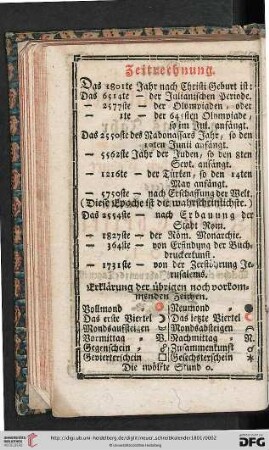 Zeitrechnung.
Das 1801te Jahr nach Christi Geburt ist:
Das 6514te — der Julianischen Periode.
— 2577ste — der Olympiaden, oder
— 1te — der 645sten Olympiade,
so im Jul. anfängt.
Das 2550ste des Nabonassars Jahr, so den
10ten Junii anfängt.
— 5562ste Jahr der Juden, so den 8ten
Sept. anfängt.
— 1216te — der Türken, so den 14ten
May anfängt.
— 5750ste — nach Erschaffung der Welt.
(Diese Epoche ist die wahrscheinlichste.)
Das 2554ste — nach Erbauung der
Stadt Rom.
— 1827ste — der Röm. Monarchie.
— 364ste — von Erfindung der Buch-
druckerkunst.
— 1731ste — von der Zerstöhrung Je-
rusalems.
Erklärung der übrigen noch vorkom-
menden Zeichen.
Vollmond Neumond
Das erste Viertel Das letzte Viertel
Mondsaufsteigen Mondsabsteigen
Vormittag » V. Nachmittag » N.
Gegenschein ☍ Zusammenkunft ☌
Gevierterschein □ Gesechsterschein ✶
Die zwölfte Stund 0.